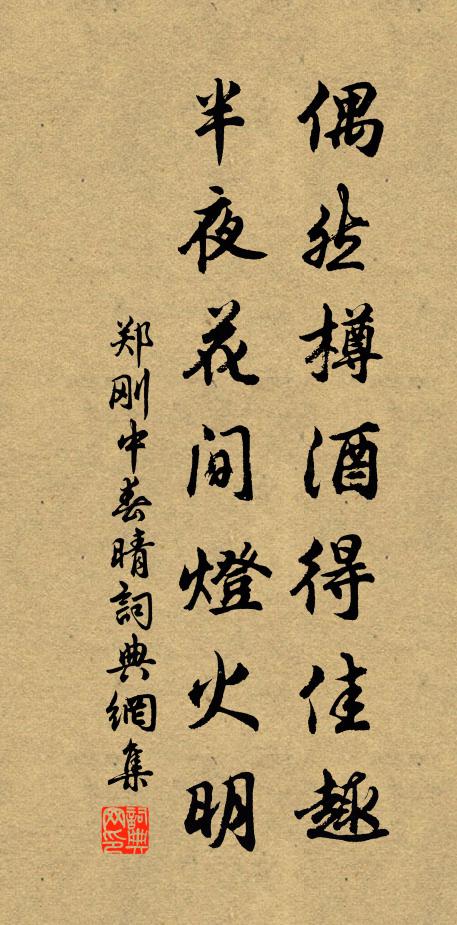 偶然樽酒得佳趣
半夜花间燈火明
郑刚中春晴詞典網集
詞典网印